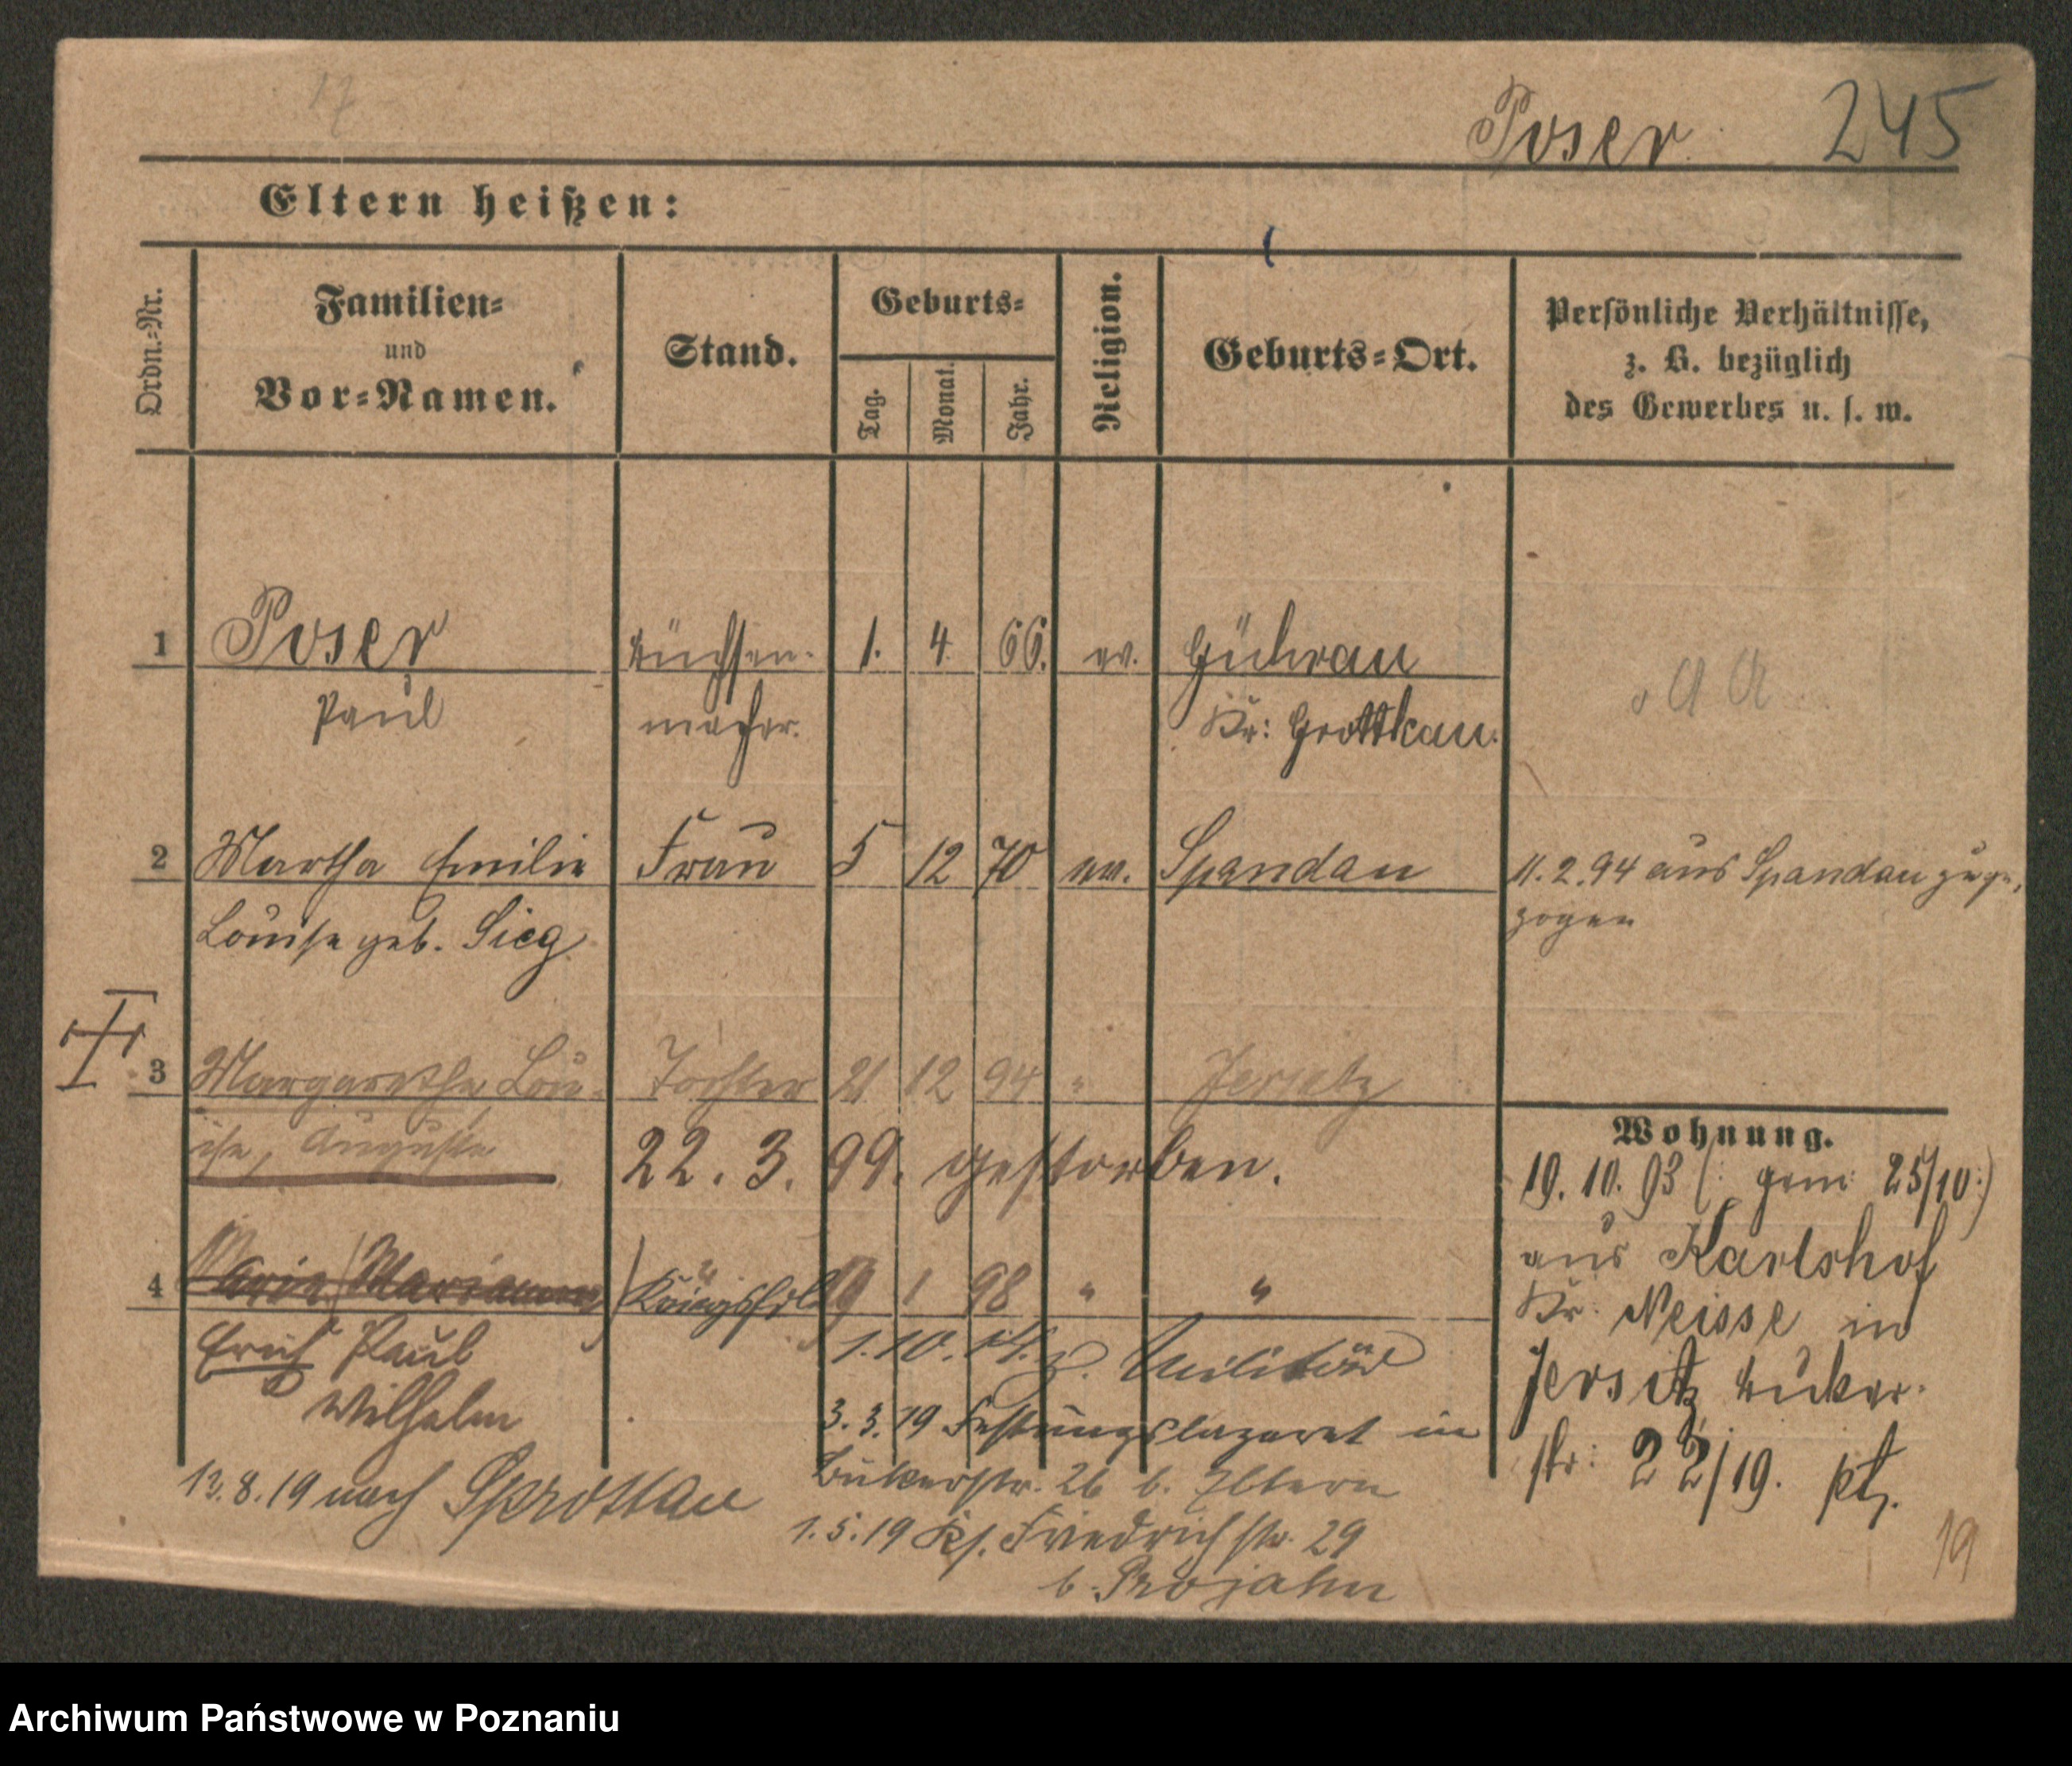 17
Poser 245
Eltern heißen:
Ordn.-Nr.
Familien-
und
Vor-Namen.
Stand.
Geburts-
Tag.
Monat.
Jahr.
Religion.
Geburts-Ort.
Persönliche Verhältnisse,
z. B. bezüglich
des Gewerbes u. s. w.
1 Poser Büchsen- 1. 4. 66. ev. Gührau
Paul macher. Kr: Grottkau.
2 Martha Emilie Frau 5 12 70 ev. Spandau 11.2.94 aus Spandau zuge-
Louise geb. Sieg zogen
3 Margarethe Lou- Tochter 21 12 94 " Jersitz
ise, Auguste 22. 3. 99. gestorben.
4 Maria Marianna 19 1 98 " "
Erich Paul 1.10. z. Militär
Wilhelm 3.3.19 Festungslazaret in
Bukerstr. 26 b. Eltern
13.8.19 nach Sprottau
1.5.19 Ks. Friedrichstr. 29
b. Projahn
Wohnung.
19.10.93 (: gem: 25/10:)
aus Karlshof
Kr. Neisse in
Jersitz Buker-
str: 22/19. pt.
19
Archiwum Państwowe w Poznaniu